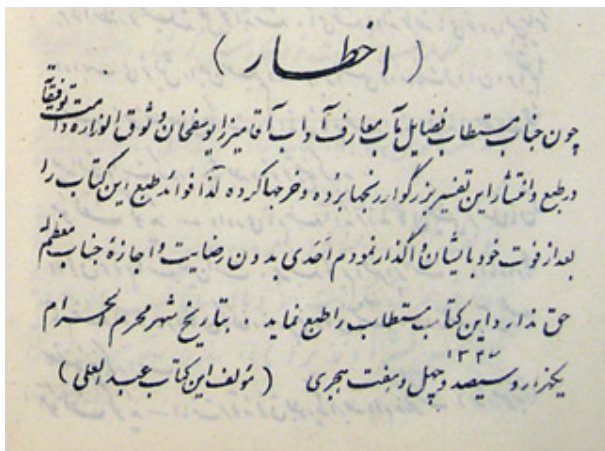 ( اخطار )
چون جناب مستطاب فضایل مآب معارف آداب آقا میرزا یوسفخان وثوق الوزاره دامت توفیقاته
در طبع و انتشار این تفسیر بزرگوار رنجها برده و خرجها کرده لذا فوائد طبع این کتاب را
بعد از فوت خود بایشان واگذار نمودم اَحَدی بدون رضایت و اجازهٔ جناب معظم له
حق ندارد این کتاب مستطاب را طبع نماید . بتاریخ شهر محرم الحرام
۱۳۴۷
یکهزار و سیصد و چهل و هفت هجری ( مؤلف این کتاب عبد العلی )